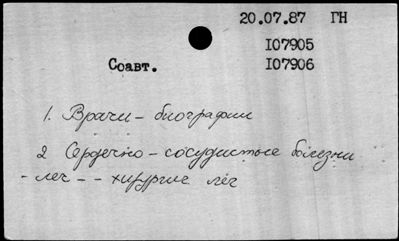 20.07.87 ГН
I07905
Соавт. I07906
1. Врачи - биографии
2 Сердечно - сосудистые болезни
- леч - - хирургич леч